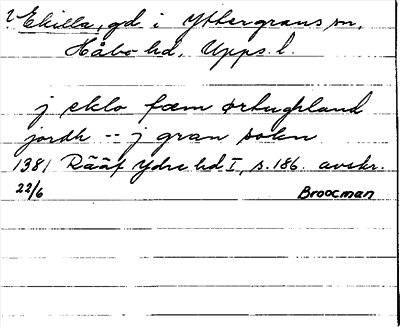 ? Ekilla, gd i Yttergrans sn,
Håbo hd, Upps. l.
j eklo fæm ørtughland
jordh -- j gran sokn
1381 Rääf Ydre hd I, s. 186. avskr.
22/6 Broocman